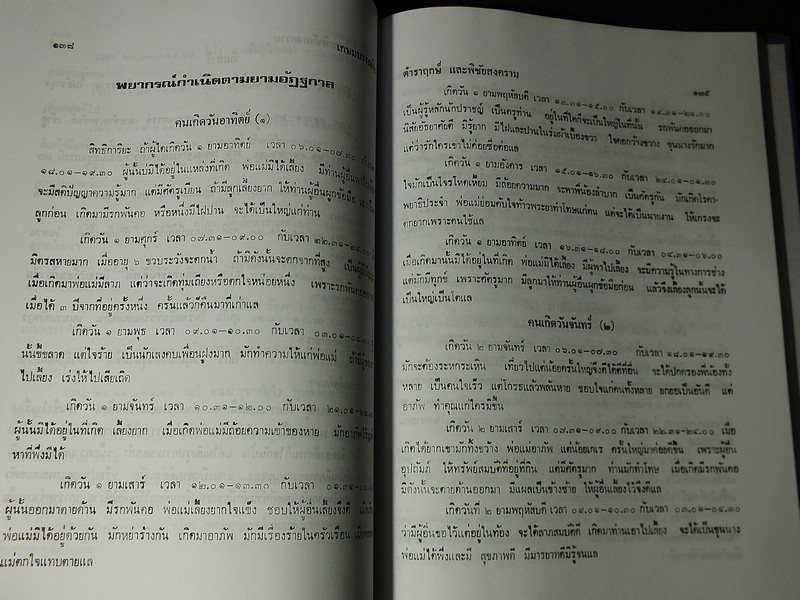 ๑๓๘
พยากรณ์กำเนิดตามยามอัฏฐกาล
คนเกิดวันอาทิตย์ (๑)
สิทธิการิยะ ถ้าผู้ใดเกิดวัน ๑ ยามอาทิตย์ เวลา ๐๖.๐๑-๐๗.๓๐
๑๘.๐๑-๑๙.๓๐ ผู้นั้นบ่มิได้อยู่ในแหล่งที่เกิด พ่อแม่มิได้เลี้ยง มีท่านผู้อื่น
จะมีสติปัญญาความรู้มาก แต่มีศัตรูเบียน ถ้ามีลูกเลี้ยงยาก ให้ท่านผู้อื่นผูกข้อมือ
ลูกก่อน เกิดมามีรกพันคอ หรือหนึ่งมีไฝปาน จะได้เป็นใหญ่แก่ท่าน
เกิดวัน ๑ ยามศุกร์ เวลา ๐๗.๓๑-๐๙.๐๐ กับเวลา ๒๒.๓๑-
มิตรสหายมาก เมื่ออายุ ๖ ขวบระวังจะตกน้ำ ถ้ามิดังนั้นจะตกจากที่สูง
เมื่อเกิดมาพ่อแม่มีลาภ แต่ว่าจะเกิดทุ่มเถียงหรือตกใจหน่อยหนึ่ง เพราะรกพันคอ
เมื่อได้ ๓ ปีจากที่อยู่ครั้งหนึ่ง ครั้นแล้วก็คืนมาที่เก่าแล
เกิดวัน ๑ ยามพุธ เวลา ๐๙.๐๑-๑๐.๓๐ กับเวลา ๐๓.๐๑-
นั้นขี้ขลาด แต่ใจร้าย เป็นนักเลงคบเพื่อนฝูงมาก มักทำความให้แก่พ่อแม่
ไปเลี้ยง เร่งให้ไปเสียเถิด
เกิดวัน ๑ ยามจันทร์ เวลา ๑๐.๓๑-๑๒.๐๐ กับเวลา ๒๑.๐๑-
ผู้นั้นมิได้อยู่ในที่เกิด เลี้ยงยาก เมื่อเกิดพ่อแม่มีถ้อยความเข้าของหาย
หาที่พึ่งมิได้
เกิดวัน ๑ ยามเสาร์ เวลา ๑๒.๐๑-๑๓.๓๐ กับเวลา ๐๑.๓๑-
ผู้นั้นออกมาตายด้าน มีรกพันคอ พ่อแม่เลี้ยงยากใจแข็ง ชอบให้ผู้อื่นเลี้ยงจึงดี
พ่อแม่มิได้อยู่ด้วยกัน มักหย่าร้างกัน เกิดมาอาภัพ มักมีเรื่องร้ายในครัวเรือน
แม่ตกใจแทบตายแล
ตำราฤกษ์ และพิชัยสงคราม
๑๓๙
เกิดวัน ๑ ยามพฤหัสบดี เวลา ๑๓.๓๑-๑๕.๐๐ กับเวลา ๑๙.๓๑-๒๑.๐๐
เป็นผู้รู้หลักนักปราชญ์ เป็นครูท่าน อยู่ในที่ใดก็จะเป็นใหญ่ในที่นั้น รกพันคอออกมา
นิสัยอัธยาศัยดี มีรู้ยาก มีไฝและปานในร่มผ้าเบื้องขวา ใจคอกว้างขวาง ขุนนางรักมาก
แต่ว่ารักใครเขาไม่ค่อยรักตอแล
เกิดวัน ๑ ยามอังคาร เวลา ๑๕.๐๑-๑๖.๓๐ กับเวลา ๒๔.๐๑-๐๑.๓๐
ใจมักเป็นโจรโหดเหี้ยม มีถ้อยความมาก จะพาพี่น้องลำบาก เป็นศัตรูกัน มักเกิดโรคา-
พยาธิประจำ พ่อแม่ย่อมคับใจท้าวพระยาทำโทษแก่ตน แต่จะได้เป็นนายงาน ให้เกรงจะ
ตกยากเพราะคนใช้แล
เกิดวัน ๑ ยามอาทิตย์ เวลา ๑๖.๓๑-๑๘.๐๐ กับเวลา ๐๔.๓๑-๐๖.๐๐
เมื่อเกิดมานั้นมิได้อยู่ในที่เกิด พ่อแม่มิได้เลี้ยง มีผู้พาไปเลี้ยง จะมีความรู้ในทางการช่าง
แต่มักมีทุกข์ เพราะศัตรูมาก มีลูกมาให้ท่านผู้อื่นผูกข้อมือก่อน แล้วจึงเลี้ยงลูกนั้นจะได้
เป็นใหญ่เป็นโตแล
คนเกิดวันจันทร์ (๒)
เกิดวัน ๒ ยามจันทร์ เวลา ๐๖.๐๑-๐๗.๓๐ กับเวลา ๑๘.๐๑-๑๙.๓๐
มักจะต้องระหกระเหิน เที่ยวไปแต่น้อยครั้นใหญ่จึงดีได้ดีที่อื่น จะได้ปกครองพี่น้องทั้ง
หลาย เป็นคนใจเร็ว แต่โกรธแล้วพลันหาย ชอบใจแก่คนทั้งหลาย ยกยอเป็นอันดี แต่
อาภัพ ทำคุณแก่ใครมิขึ้น
เกิดวัน ๒ ยามเสาร์ เวลา ๐๗.๓๑-๐๙.๐๐ กับเวลา ๒๒.๓๑-๒๔.๐๐ เมื่อ
เกิดได้ยากเขามักทิ้งขว้าง พ่อแม่อาภัพ แต่น้อยเกเร ครั้นใหญ่มาค่อยดีขึ้น เพราะผู้อื่น
อุปถัมภ์ ให้ทรัพย์สมบัติที่อยู่ที่กิน แต่มีศัตรูมาก ท่านมักทำโทษ เมื่อเกิดมีรกพันคอ
มิดังนั้นจะตายด้านออกมา มีแผลเป็นข้างซ้าย ให้ผู้อื่นเลี้ยงไว้จึงดีแล
เกิดวันที่ ๒ ยามพฤหัสบดี เวลา ๐๙.๐๑-๑๐.๓๐ กับเวลา ๐๓.๐๑-๐๔.๓๐
ว่ามีผู้อื่นขอไว้แต่อยู่ในท้อง จะได้ลาภสมบัติดี เกิดมาท่านเอาไปเลี้ยง จะได้เป็นขุนนาง
พ่อแม่ได้พึ่งและมี สุขภาพดี มีมารยาทดีมิรู้จนแล